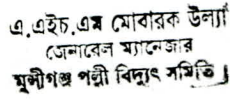 এ.এইচ.এম মোবারক উল্যা
জেনারেল ম্যানেজার
মুন্সীগঞ্জ পল্লী বিদ্যুৎ সমিতি।